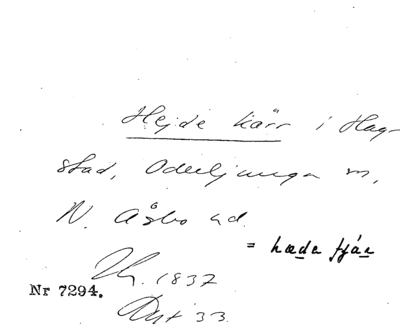 Hejde kärr i Hag-
stad, Oderljunga sn,
N. Åsbo hd.
= hæda
1837
Nr 7294.
Akt 33.